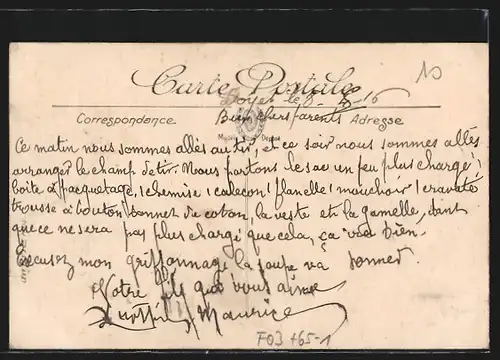 10
Carte Postale
Doyet le 8-5-16
Correspondance.
Bien chers parents
Adresse
Ce matin nous sommes allés au tir, et ce soir nous sommes allés
arranger le champ de tir. Nous partons le sac un peu plus chargé 1
boite à pacquetage, 1 chemise 1 caleçon 1 flanelle 1 mouchoir 1 cravate
trousse à bouton bonnet de coton, la veste et la gamelle, dont
que ce ne sera pas plus chargé que cela, ça va bien.
Excusez mon griffonnage la soupe va sonner
Votre fils qui vous aime
Maurice
F03 +65-1